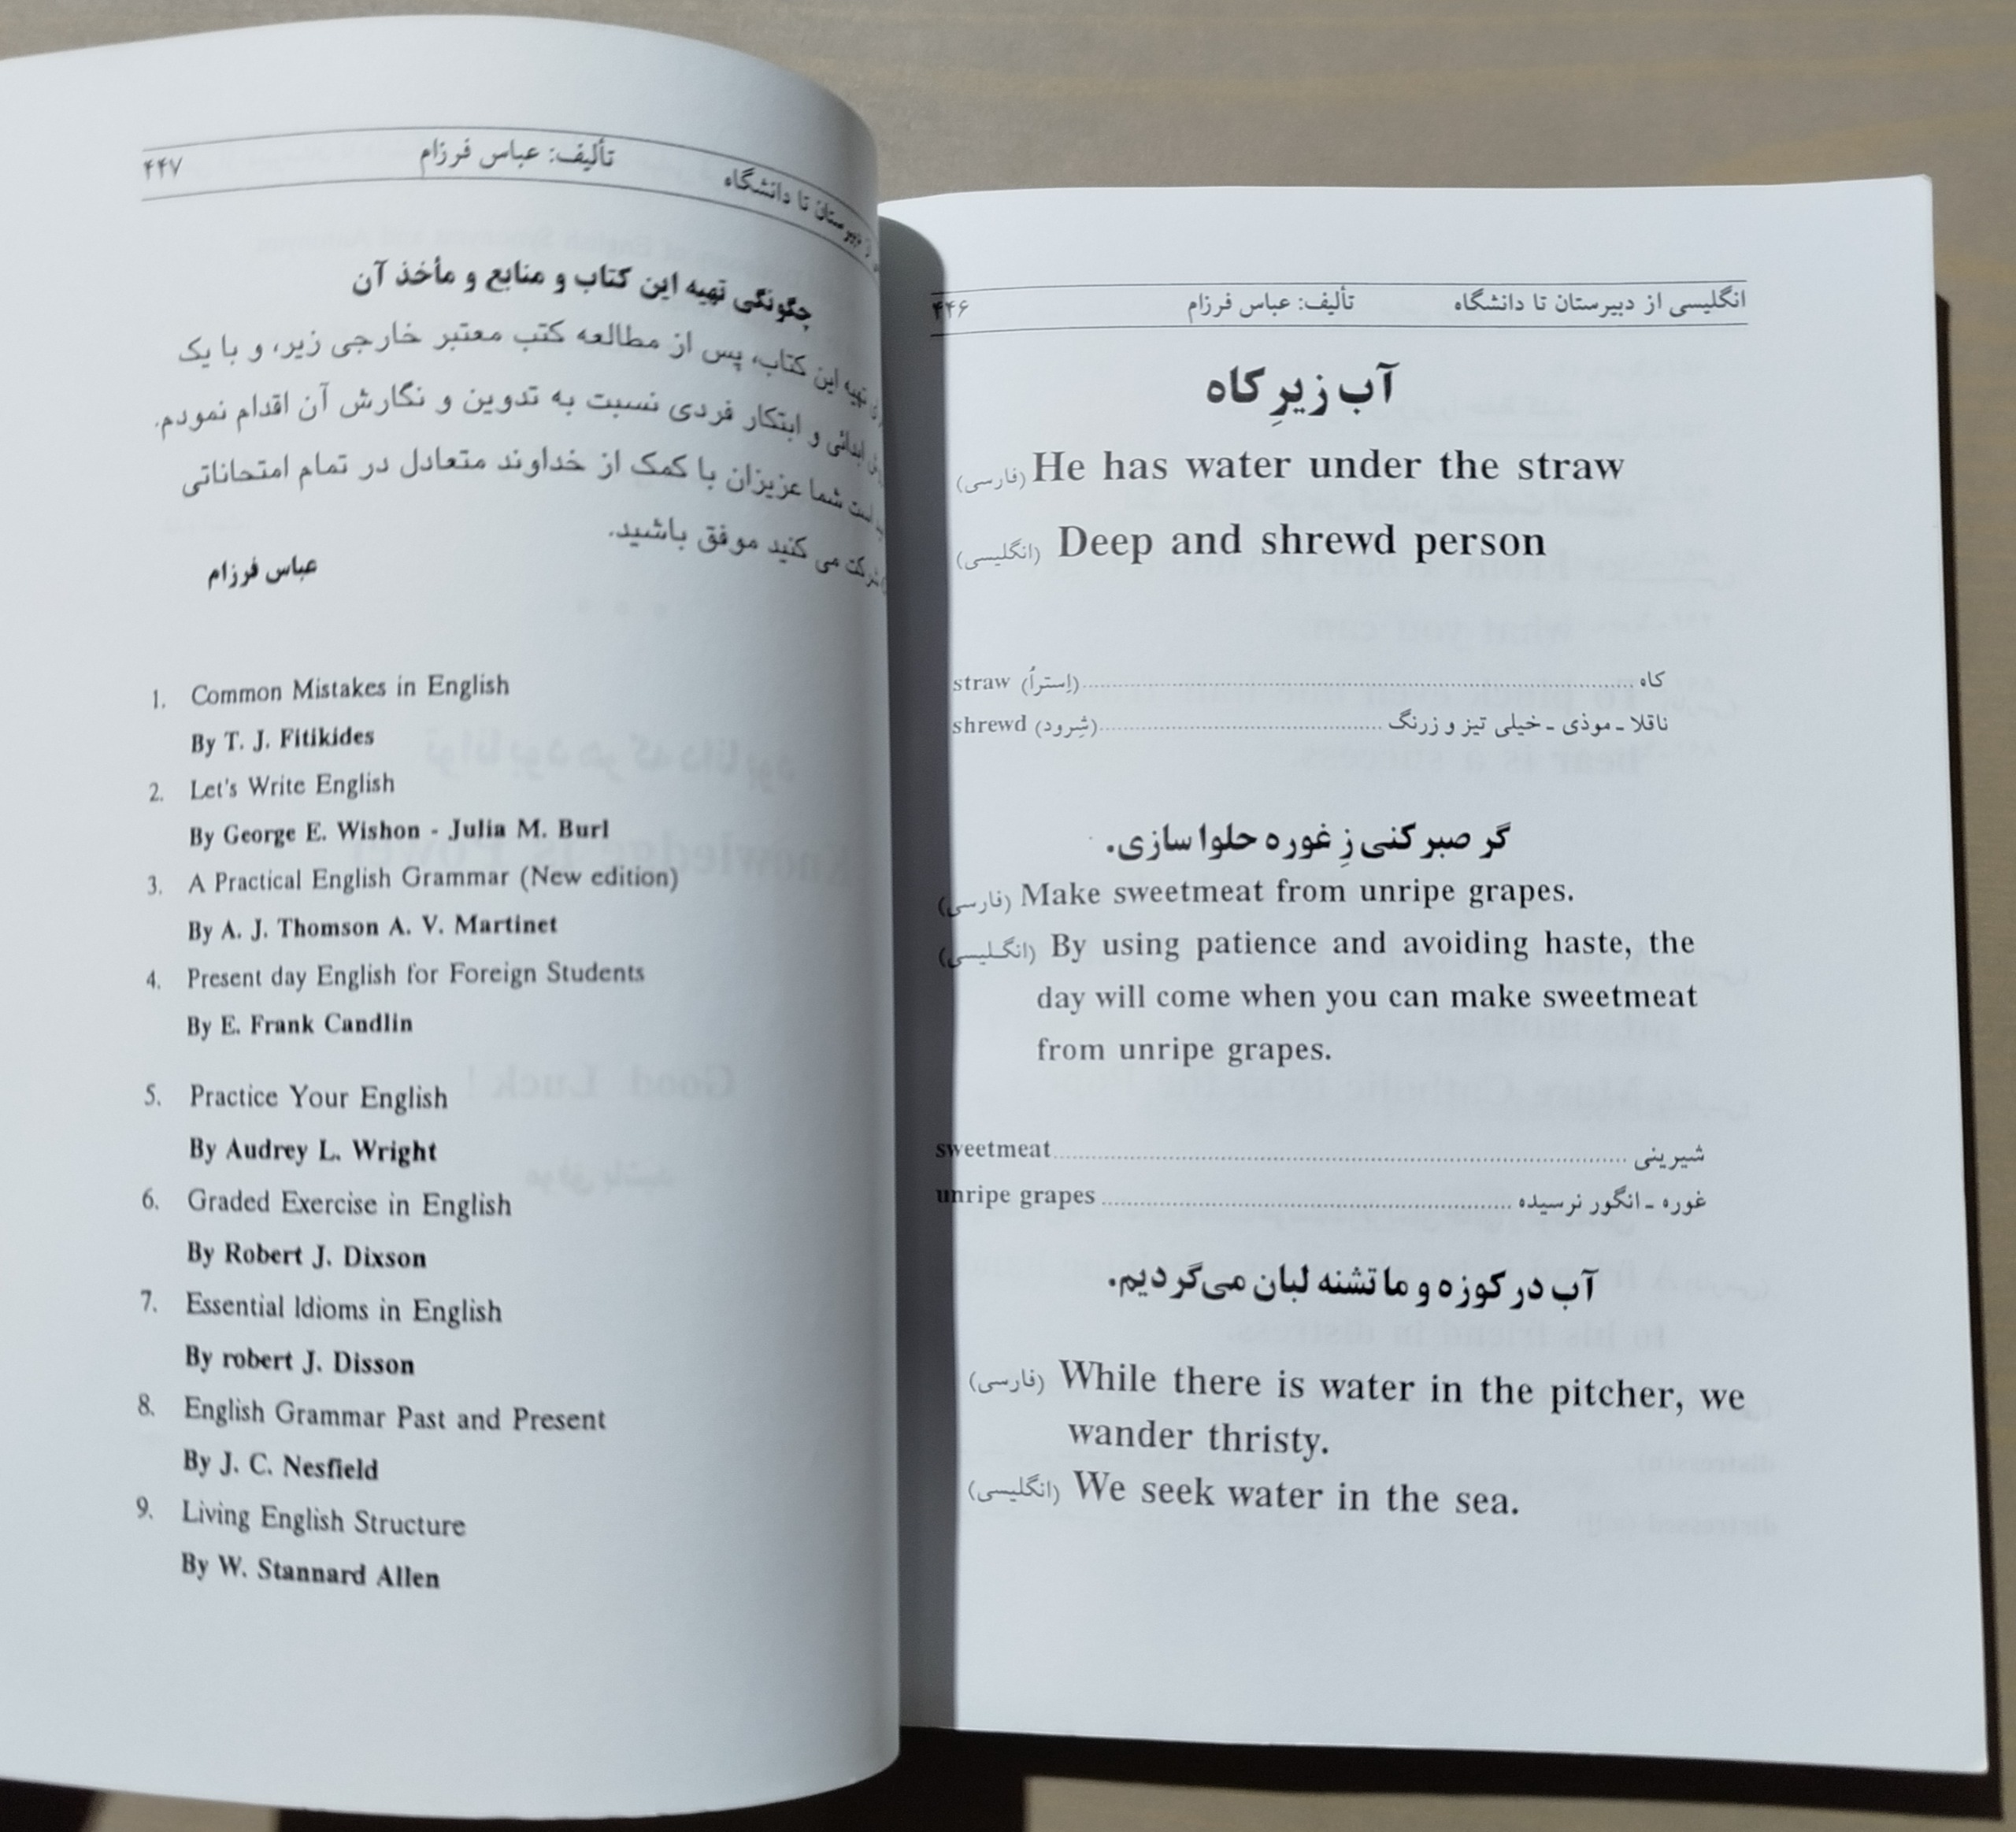 انگلیسی از دبیرستان تا دانشگاه تألیف: عباس فرزام ۴۴۶
آب زیرِ کاه
(فارسی) He has water under the straw
(انگلیسی) Deep and shrewd person
straw (اِستراُ) کاه
shrewd (شِرود) ناقلا ـ موذی ـ خیلی تیز و زرنگ
گر صبر کنی زِ غوره حلوا سازی.
(فارسی) Make sweetmeat from unripe grapes.
(انگلیسی) By using patience and avoiding haste, the
day will come when you can make sweetmeat
from unripe grapes.
sweetmeat شیرینی
unripe grapes غوره ـ انگور نرسیده
آب در کوزه و ما تشنه لبان می‌گردیم.
(فارسی) While there is water in the pitcher, we
wander thristy.
(انگلیسی) We seek water in the sea.
از دبیرستان تا دانشگاه تألیف: عباس فرزام ۴۴۷
چگونگی تهیه این کتاب و منابع و مأخذ آن
تهیه این کتاب، پس از مطالعه کتب معتبر خارجی زیر، و با یک
ابدائی و ابتکار فردی نسبت به تدوین و نگارش آن اقدام نمودم.
است شما عزیزان با کمک از خداوند متعادل در تمام امتحاناتی
شرکت می کنید موفق باشید.
عباس فرزام
1. Common Mistakes in English
By T. J. Fitikides
2. Let's Write English
By George E. Wishon - Julia M. Burl
3. A Practical English Grammar (New edition)
By A. J. Thomson A. V. Martinet
4. Present day English for Foreign Students
By E. Frank Candlin
5. Practice Your English
By Audrey L. Wright
6. Graded Exercise in English
By Robert J. Dixson
7. Essential Idioms in English
By robert J. Disson
8. English Grammar Past and Present
By J. C. Nesfield
9. Living English Structure
By W. Stannard Allen